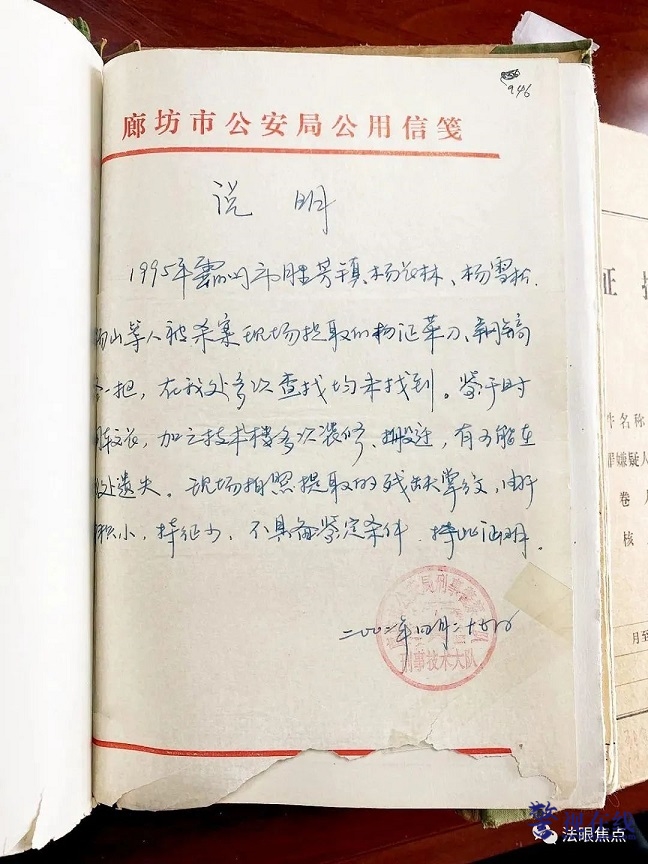 946
廊坊市公安局公用信笺
说 明
1995年霸州市胜芳镇杨长林、杨雪松、
山等人被杀案现场提取的物证菜刀、
一把，在我处多次查找均未找到。鉴于时
间较长，加之技术楼多次装修、搬迁，有可能在
处遗失。现场拍照提取的残缺掌纹，由于
积小，特征少，不具备鉴定条件，特此说明。
二00二年四月二十
局刑事
刑事技术大队
证
件名称
罪嫌疑人
卷
核
月至
法眼焦点